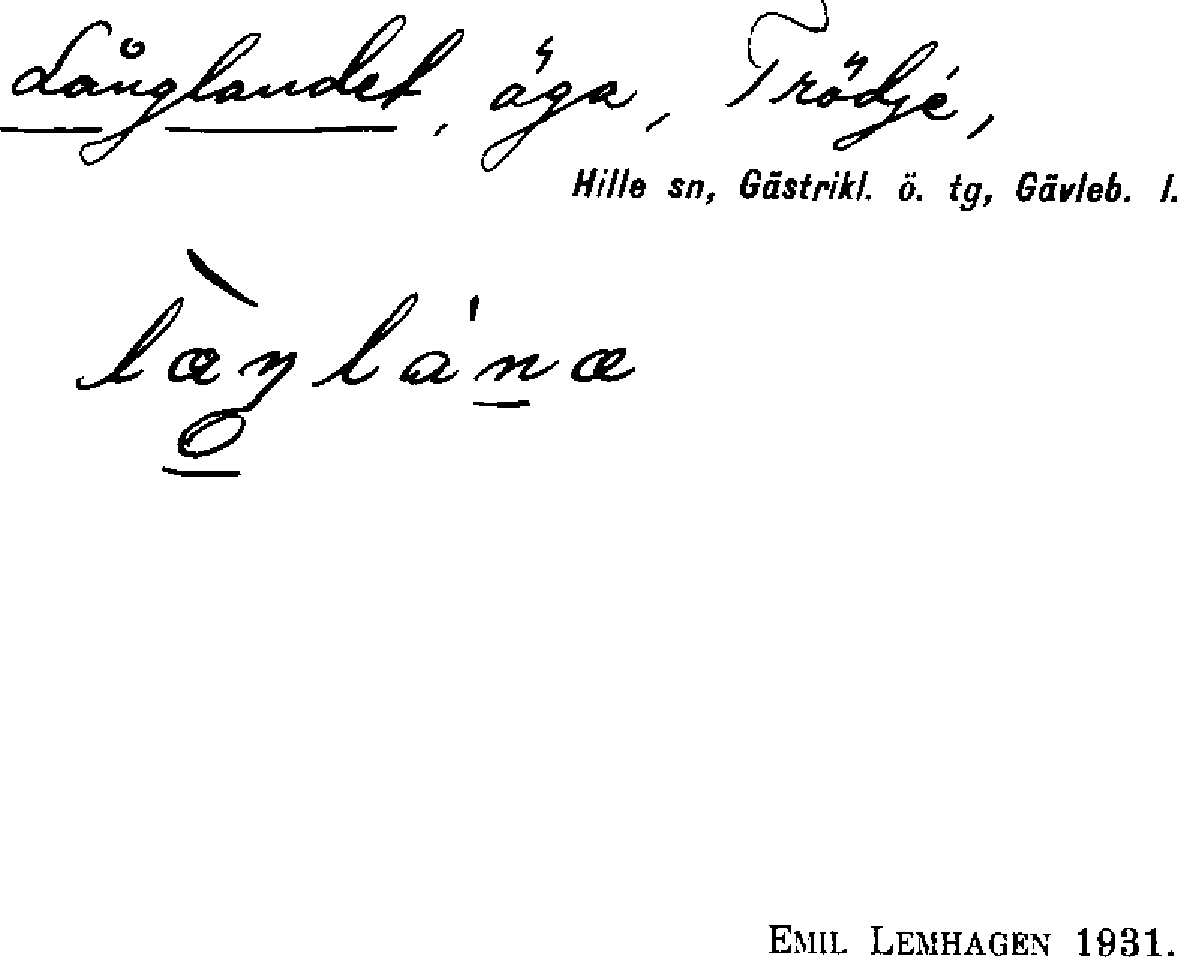 Långlandet, äga, Trödjé,
Hille sn, Gästrikl. ö. tg, Gävleb. l.
EMIL LEMHAGEN 1931.